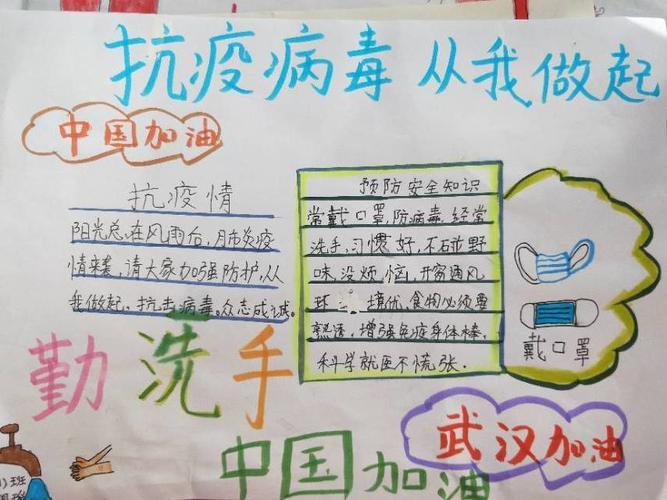 抗疫病毒 从我做起
中国加油
抗疫情
阳光总在风雨后，月市炎疫
情来袭，请大家加强防护，从
我做起，抗击病毒。众志成诚。
预防安全知识
常戴口罩，防病毒，经常
洗手，习惯好，不碰野
味没烦恼，开窗通风
环 境优，食物必须要
熟透，增强免疫身体棒，
科学就医不慌张．
戴口罩
勤洗手
武汉加油
中国加油
班